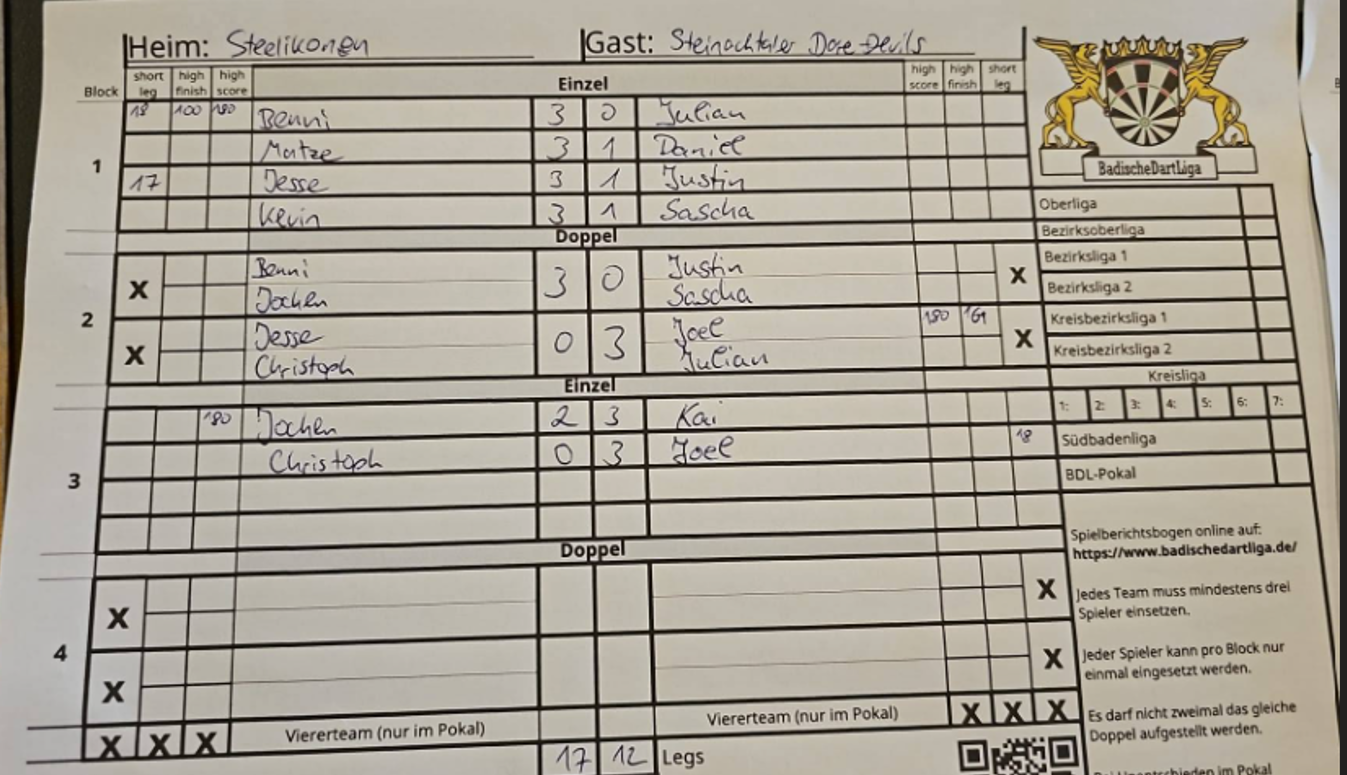 Heim: Steelikonen Gast: Steinachtaler Dare Devils
Block short leg high finish high score Einzel high score high finish short leg
1
18 100 180 Benni 3 0 Julian
Matze 3 1 Daniel
17 Jesse 3 1 Justin
Kevin 3 1 Sascha
Doppel
2
X Benni 3 0 Justin X
Jochen Sascha
X Jesse 0 3 Joel 180 161 X
Christoph Julian
Einzel
3
180 Jochen 2 3 Kai
Christoph 0 3 Joel 18
Doppel
4
X X
X X
X X X Viererteam (nur im Pokal) Viererteam (nur im Pokal) X X X
17 12 Legs
BadischeDartLiga
Oberliga
Bezirksoberliga
Bezirksliga 1
Bezirksliga 2
Kreisbezirksliga 1
Kreisbezirksliga 2
Kreisliga
1: 2: 3: 4: 5: 6: 7:
Südbadenliga
BDL-Pokal
Spielberichtsbogen online auf:
https://www.badischedartliga.de/
Jedes Team muss mindestens drei
Spieler einsetzen.
Jeder Spieler kann pro Block nur
einmal eingesetzt werden.
Es darf nicht zweimal das gleiche
Doppel aufgestellt werden.